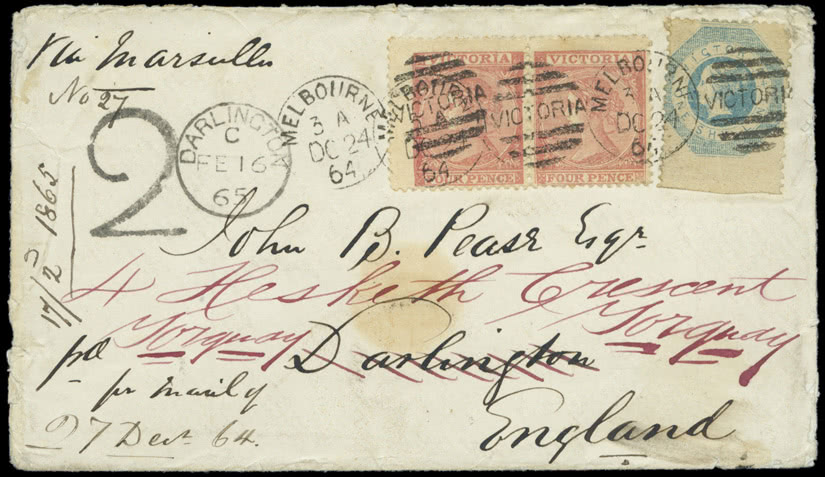 Via Marseilles
No 27
MELBOURNE
3 A
DC 24
64
VICTORIA
FOUR PENCE
VICTORIA
VICTORIA
FOUR PENCE
VICTORIA
MELBOURNE
3 A
DC 24
64
VICTORIA
DARLINGTON
C
FE 16
65
2
17/2 1865
John B. Pease Esqr
4 Hesketh Crescent
Torquay
Torquay
pd
Darlington
pr mail of
27 Decr 64.
England